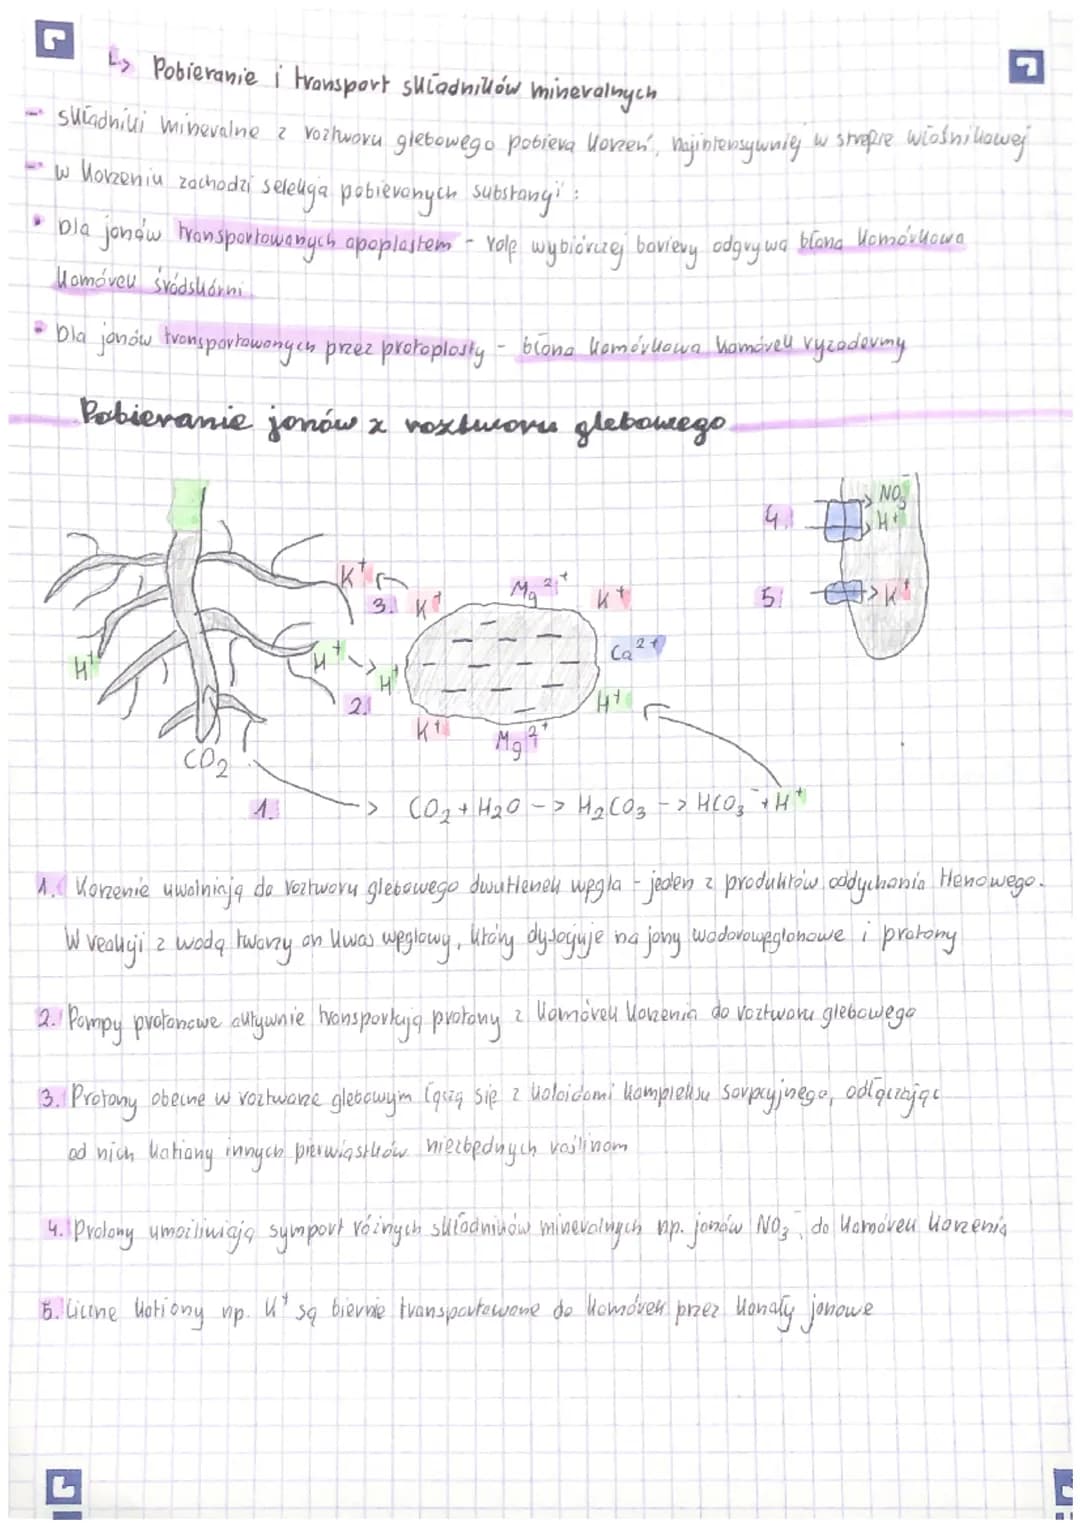 ↳ Pobieranie i transport składników mineralnych
- składniki mineralne z roztworu glebowego pobiera korzeń, najintensywniej w strefie włośnikowej
- w korzeniu zachodzi selekcja pobieranych substancji :
• Dla jonów transportowanych apoplastem - rolę wybiórczej bariery odgrywa błona komórkowa
komórek śródskórni
• Dla jonów transportowanych przez protoplasty - błona komórkowa komórek ryzodermy
Pobieranie jonów z roztworu glebowego
4. NO3⁻
H⁺
5. K⁺
K⁺
3. K⁺
Mg²⁺
K⁺
Ca²⁺
H⁺
H⁺ -> H⁺
2.
H⁺
K⁺
Mg²⁺
CO2
1. -> CO2 + H2O -> H2CO3 -> HCO3⁻ + H⁺
1. Korzenie uwalniają do roztworu glebowego dwutlenek węgla - jeden z produktów oddychania tlenowego.
W reakcji z wodą tworzy on kwas węglowy, który dysocjuje na jony wodorowęglanowe i protony
2. Pompy protonowe aktywnie transportują protony z komórek korzenia do roztworu glebowego
3. Protony obecne w roztworze glebowym łączą się z koloidami kompleksu sorpcyjnego, odłączając
od nich kationy innych pierwiastków niezbędnych roślinom
4. Protony umożliwiają symport różnych składników mineralnych np. jonów NO3⁻, do komórek korzenia
5. Liczne kationy np. K⁺ są biernie transportowane do komórek przez kanały jonowe